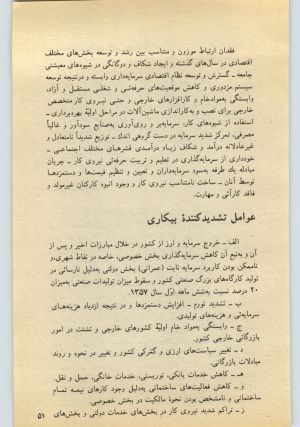 فقدان ارتباط موزون و متناسب بین رشد و توسعه بخش‌های مختلف
اقتصادی در سال‌های گذشته و ایجاد شکاف و دوگانگی در شیوه‌های معیشتی
جامعه ـ گسترش و توسعه نظام اقتصادی سرمایه‌داری وابسته و درنتیجه توسعه
سیستم مزدوری و کاهش موقعیت‌های حرفه‌ئی و شغلی مستقل و آزاد.
وابستگی به‌موادخام و کارافزارهای خارجی و حتی نیروی کار متخصص
خارجی برای نصب و به‌کاراندازی ماشین‌آلات در مراحل اولیهٔ بهره‌برداری ـ
استفاده از شیوه‌های کار، سرمایه‌بر و روی‌آوری به‌صنایع سودآور و غالباً
مصرفی، تمرکز شدید سرمایه در دست گروهی اندك ـ توزیع شدیداً نامتعادل و
غیرعادلانه درآمد و شکاف زیاد درآمدی قشرهای مختلف اجتماعی ـ
خودداری از سرمایه‌گذاری در تعلیم و تربیت حرفه‌ئی نیروی کار ـ جریان
مبادله یك طرفه به‌سود سرمایه‌داران و تعیین و تنظیم قیمت‌ها و دستمزدها
توسط آنان ـ ساخت نامتناسب نیروی کار و وجود انبوه کارکنان غیرمولد و
فاقد کارآئی و مهارت.
عوامل تشدیدکنندهٔ بیکاری
الف ـ خروج سرمایه و ارز از کشور در خلال مبارزات اخیر و پس از
آن و به‌تبع آن کاهش سرمایه‌گذاری بخش خصوصی، خاصه در نقاط شهری، و
ناممکن بودن کاربرد سرمایه ثابت (عمرانی) بخش دولتی به‌دلیل نارسائی در
تولید کارگاه‌های بزرگ صنعتی کشور و سقوط میزان تولیدات صنعتی به‌میزان
۲۰ درصد نسبت به‌شش ماهه اول سال ۱۳۵۷.
ب ـ تشدید تورم ـ افزایش دستمزدها و در نتیجه ازدیاد هزینه‌های
سرمایه‌ئی و هزینه‌های تولیدی.
ج ـ وابستگی به‌مواد خام اولیهٔ کشورهای خارجی و تشتت در امور
بازرگانی خارجی کشور.
د ـ تغییر سیاست‌های ارزی و گمرکی کشور و تغییر در نحوه و روند
مبادلات بازرگانی.
هـ ـ کاهش خدمات بانکی، توریستی، خدمات خانگی، حمل و نقل.
و ـ کاهش فعالیت‌های ساختمانی به‌دلیل وجود کارهای نیمه تمام
ساختمانی و نامشخص بودن نحوهٔ مالکیت در بخش خصوصی.
ز ـ تراکم شدید نیروی کار در بخش‌های خدمات دولتی و بخش‌های
۵۱